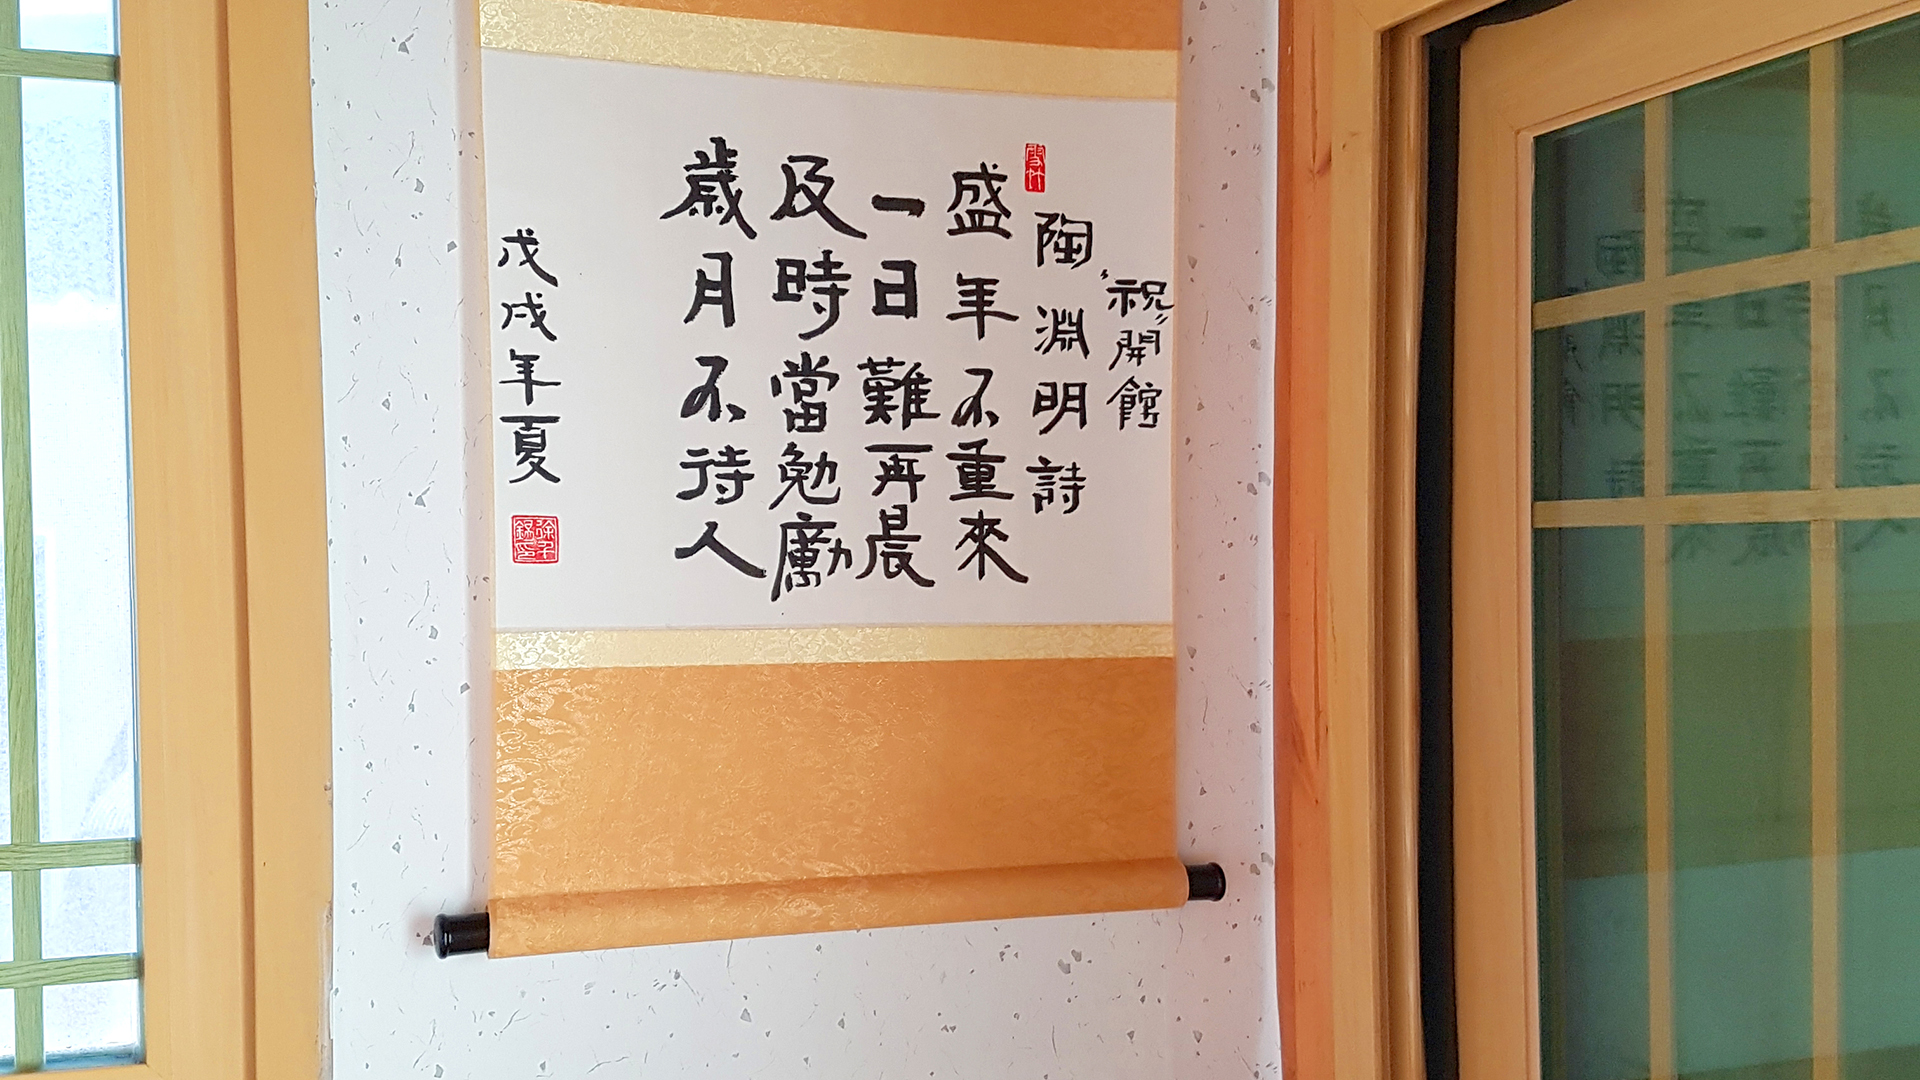 "祝"開館
陶淵明詩
盛年不重來
一日難再晨
及時當勉勵
歲月不待人
戊戌年夏